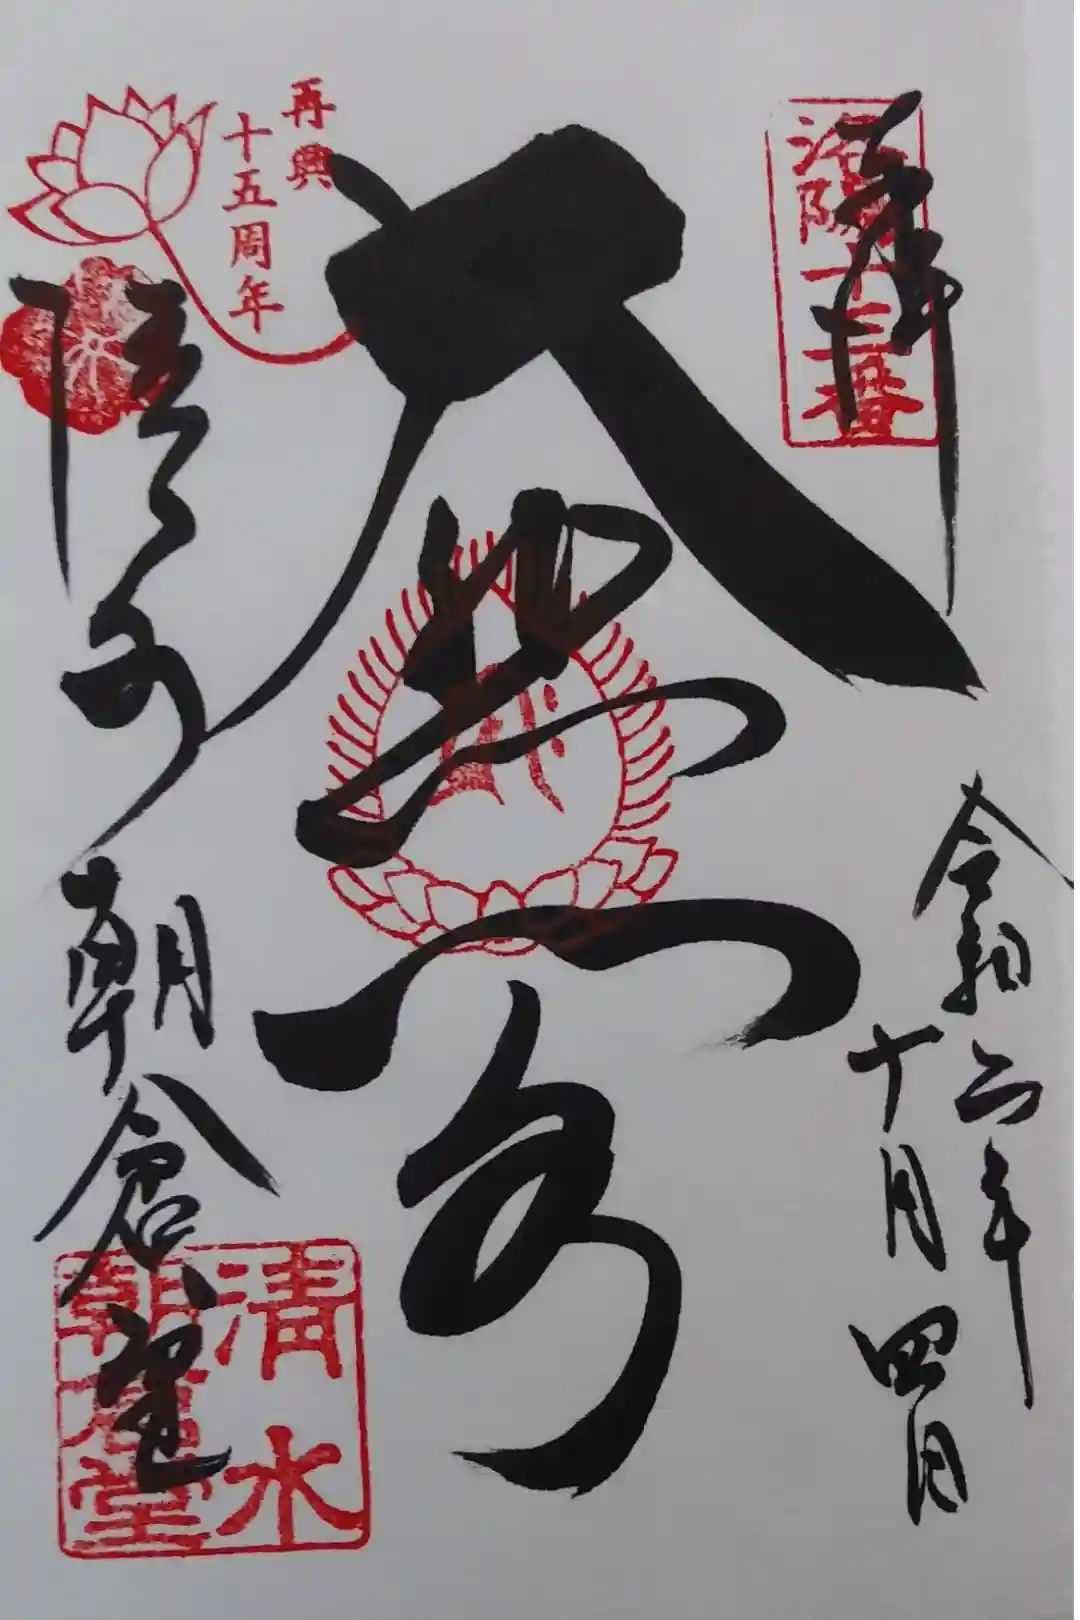 奉拝
洛陽十三番
令和六年
十月四日
大悲閣
再興
十五周年
清水寺
朝倉堂
清水
朝倉堂